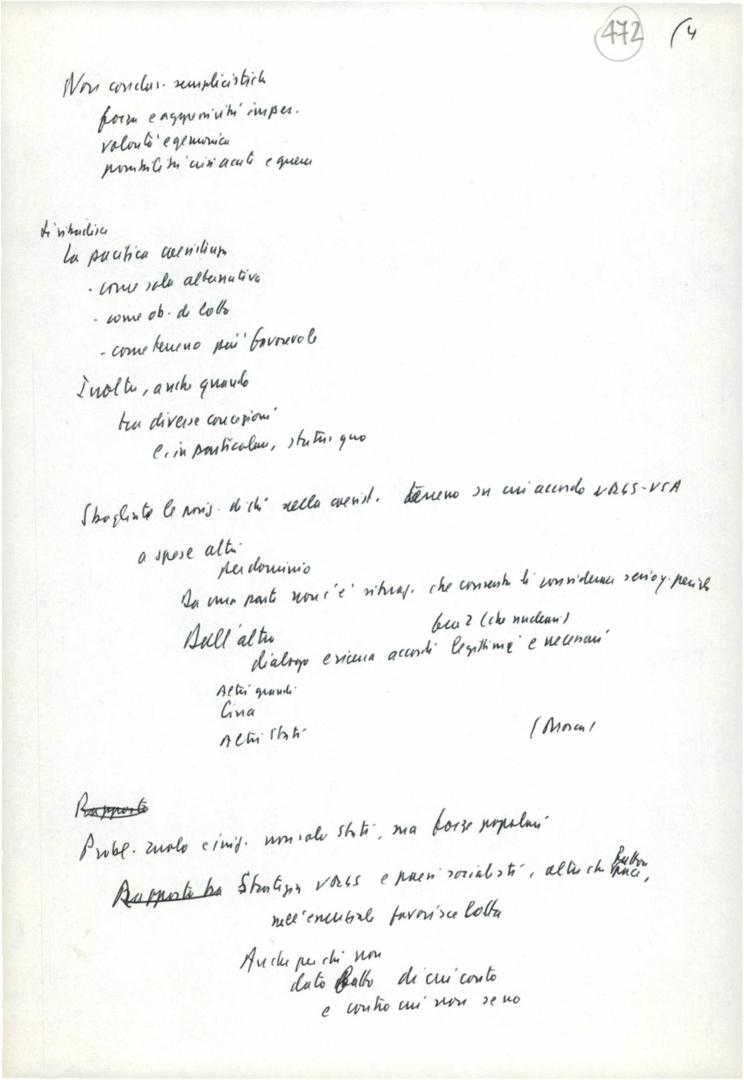 472 (4
Non conclus. semplicistich
forza e aggressività imper.
volontà egemonica
possibilità crisi acute e guerre
si ribadisce
La pacifica coesistenza
- come sola alternativa
- come ob. di lotta
- come terreno più favorevole
Inoltre, anche quando
tra diverse concezioni
e, in particolare, status quo
Sbagliate le posiz. di chi nella coesist. terreno su cui accordo URSS-USA
a spese altri
per dominio
Da una parte non c'è situaz. che consenta di considerare
tra 2 (che nucleari)
Dall'altro
dialogo e ricerca accordi legittimi e necessari
Altri grandi
Cina
Altri Stati (Mosca)
Rapporto
Probl. ruolo e iniz. non solo Stati, ma forze popolari
Rapporto tra Strategia URSS e paesi socialisti, oltre che pace,
nell'essenziale favorisce lotta
Anche perché non
dato di cui conto
e contro cui non si può